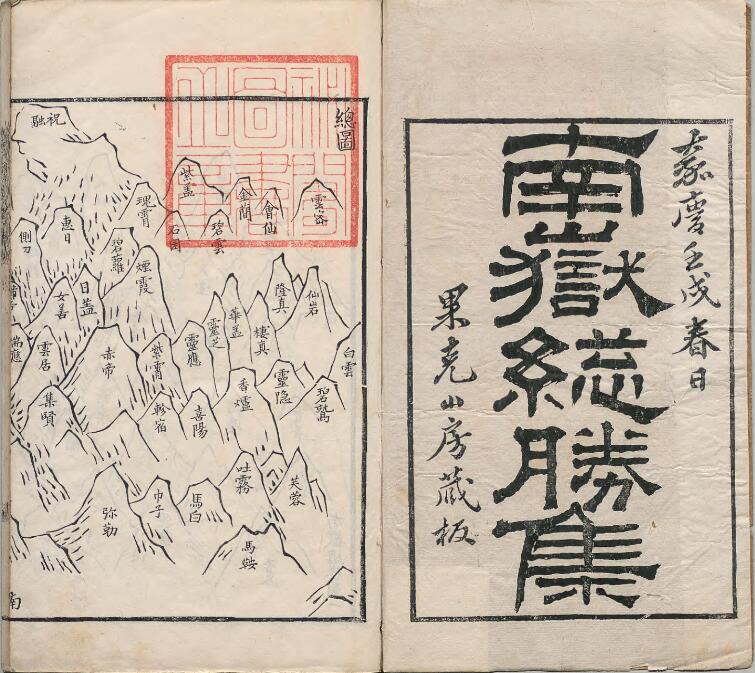 嘉慶壬戌春日
南嶽總勝集
果克山房藏板
總圖
雲密
會仙
金簡
紫蓋
碧雲
石囷
現霄
祝融
惠日
側刀
碧蘿
煙霞
日蓋
女喜
仙岩
隆真
棲真
華蓋
靈芝
靈應
紫霄
赤帝
雲居
瑞應
白雲
碧鷄
靈隐
香爐
喜陽
軫宿
集賢
芙蓉
吐霧
馬白
巾子
弥勒
馬鞍
南